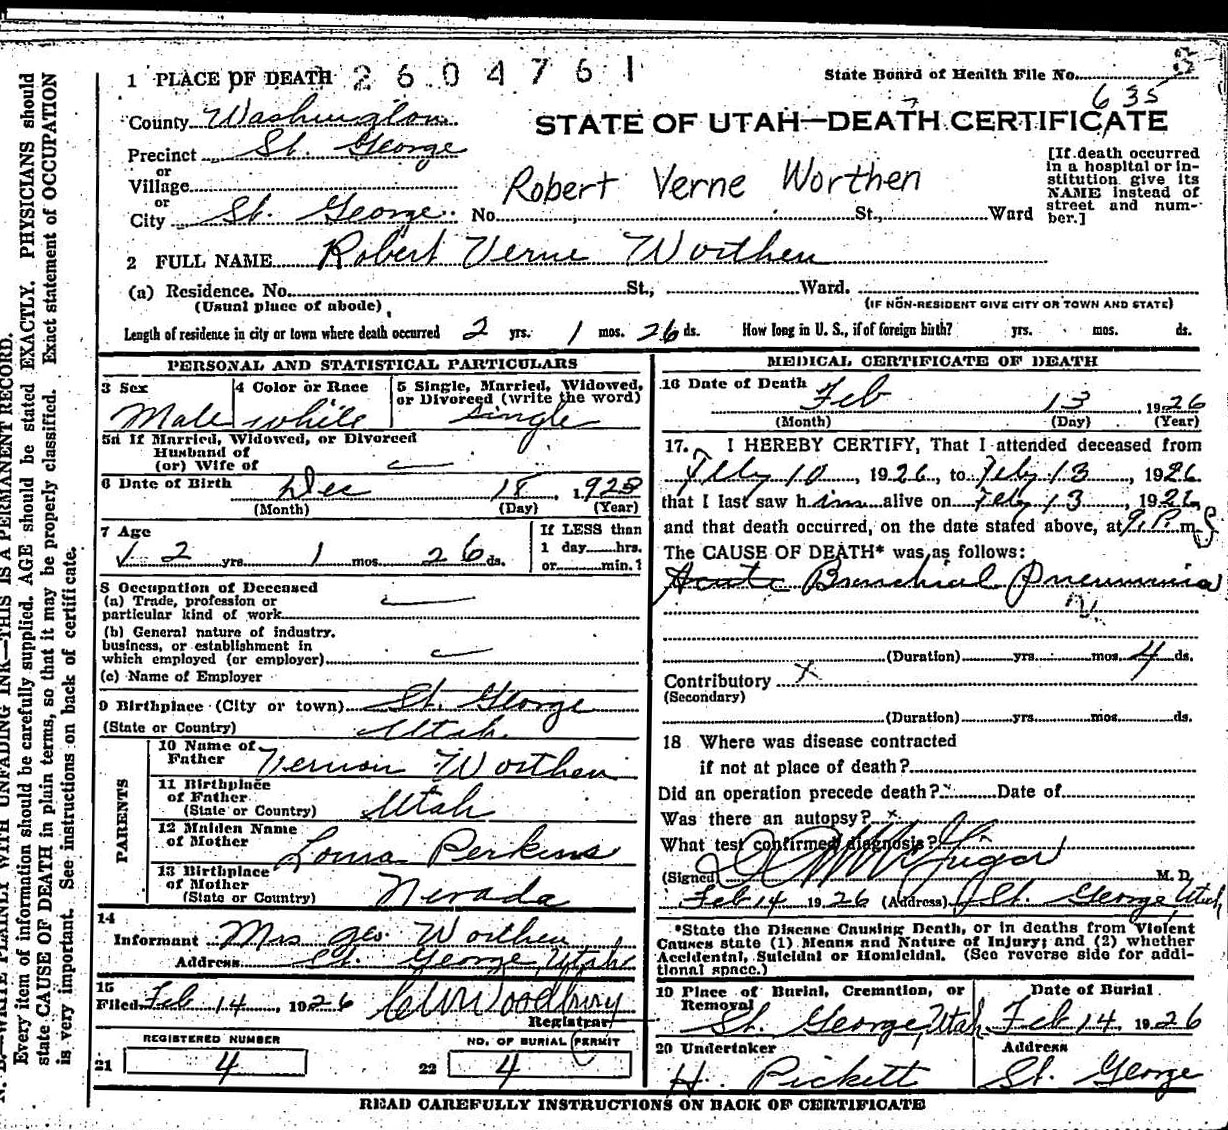 1 PLACE OF DEATH 2604761
State Board of Health File No. 3
635
County Washington
STATE OF UTAH—DEATH CERTIFICATE
Precinct St. George
or
Village
or
City St. George No. St., Ward
Robert Verne Worthen
[If death occurred in a hospital or institution give its NAME instead of street and number.]
2 FULL NAME Robert Verne Worthen
(a) Residence. No. St., Ward.
(Usual place of abode)
(IF NON-RESIDENT GIVE CITY OR TOWN AND STATE)
Length of residence in city or town where death occurred 2 yrs. 1 mos. 26 ds. How long in U. S., if of foreign birth? yrs. mos. ds.
PERSONAL AND STATISTICAL PARTICULARS
3 Sex 4 Color or Race 5 Single, Married, Widowed,
or Divorced (write the word)
Male white single
5a If Married, Widowed, or Divorced
Husband of
(or) Wife of
6 Date of Birth Dec 18, 1923
(Month) (Day) (Year)
7 Age If LESS than
1 day hrs.
2 yrs. 1 mos. 26 ds. or min.?
8 Occupation of Deceased
(a) Trade, profession or
particular kind of work
(b) General nature of industry.
business, or establishment in
which employed (or employer)
(c) Name of Employer
9 Birthplace (City or town) St. George
(State or Country) Utah
PARENTS
10 Name of
Father Vernon Worthen
11 Birthplace
of Father
(State or Country) Utah
12 Maiden Name
of Mother Louisa Perkins
13 Birthplace
of Mother
(State or Country) Nevada
14
Informant Mrs Geo. Worthen
Address St. George, Utah
15
Filed Feb 14, 1926 Woodbury
Registrar
REGISTERED NUMBER NO. OF BURIAL PERMIT
21 4 22 4
MEDICAL CERTIFICATE OF DEATH
16 Date of Death Feb 13, 1926
(Month) (Day) (Year)
17. I HEREBY CERTIFY, That I attended deceased from
Feby 10, 1926, to Feby 13, 1926
that I last saw him alive on Feby 13, 1926
and that death occurred, on the date stated above, at 9 P. m
The CAUSE OF DEATH* was as follows:
Acute Bronchial Pneumonia
(Duration) yrs. mos. 4 ds.
Contributory x
(Secondary)
(Duration) yrs. mos. ds.
18 Where was disease contracted
if not at place of death?
Did an operation precede death? Date of
Was there an autopsy? x
What test confirmed diagnosis?
(Signed) McGregor M. D.
Feb 14 1926 (Address) St. George, Utah
*State the Disease Causing Death, or in deaths from Violent
Causes state (1) Means and Nature of Injury; and (2) whether
Accidental, Suicidal or Homicidal. (See reverse side for addi-
tional space.)
19 Place of Burial, Cremation, or Date of Burial
Removal
St. George, Utah Feb 14 1926
20 Undertaker Address
H. Pickett St. George
READ CAREFULLY INSTRUCTIONS ON BACK OF CERTIFICATE
N. B.—WRITE PLAINLY WITH UNFADING INK—THIS IS A PERMANENT RECORD.
Every item of information should be carefully supplied. AGE should be stated EXACTLY. PHYSICIANS should
state CAUSE OF DEATH in plain terms, so that it may be properly classified. Exact statement of OCCUPATION
is very important. See instructions on back of certificate.